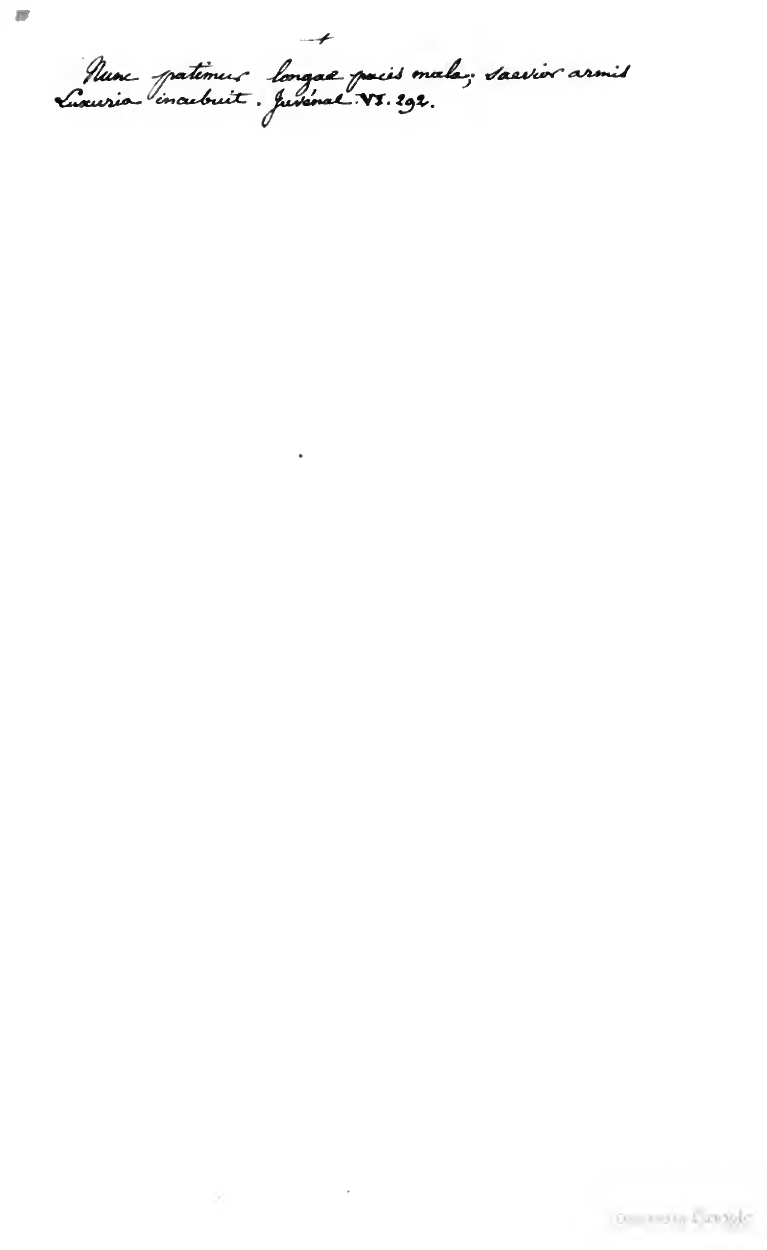 Nunc patimur longae pacis mala; saevior armis
Luxuria incubuit. Juvénal. VI. 292.
Digitized by Google